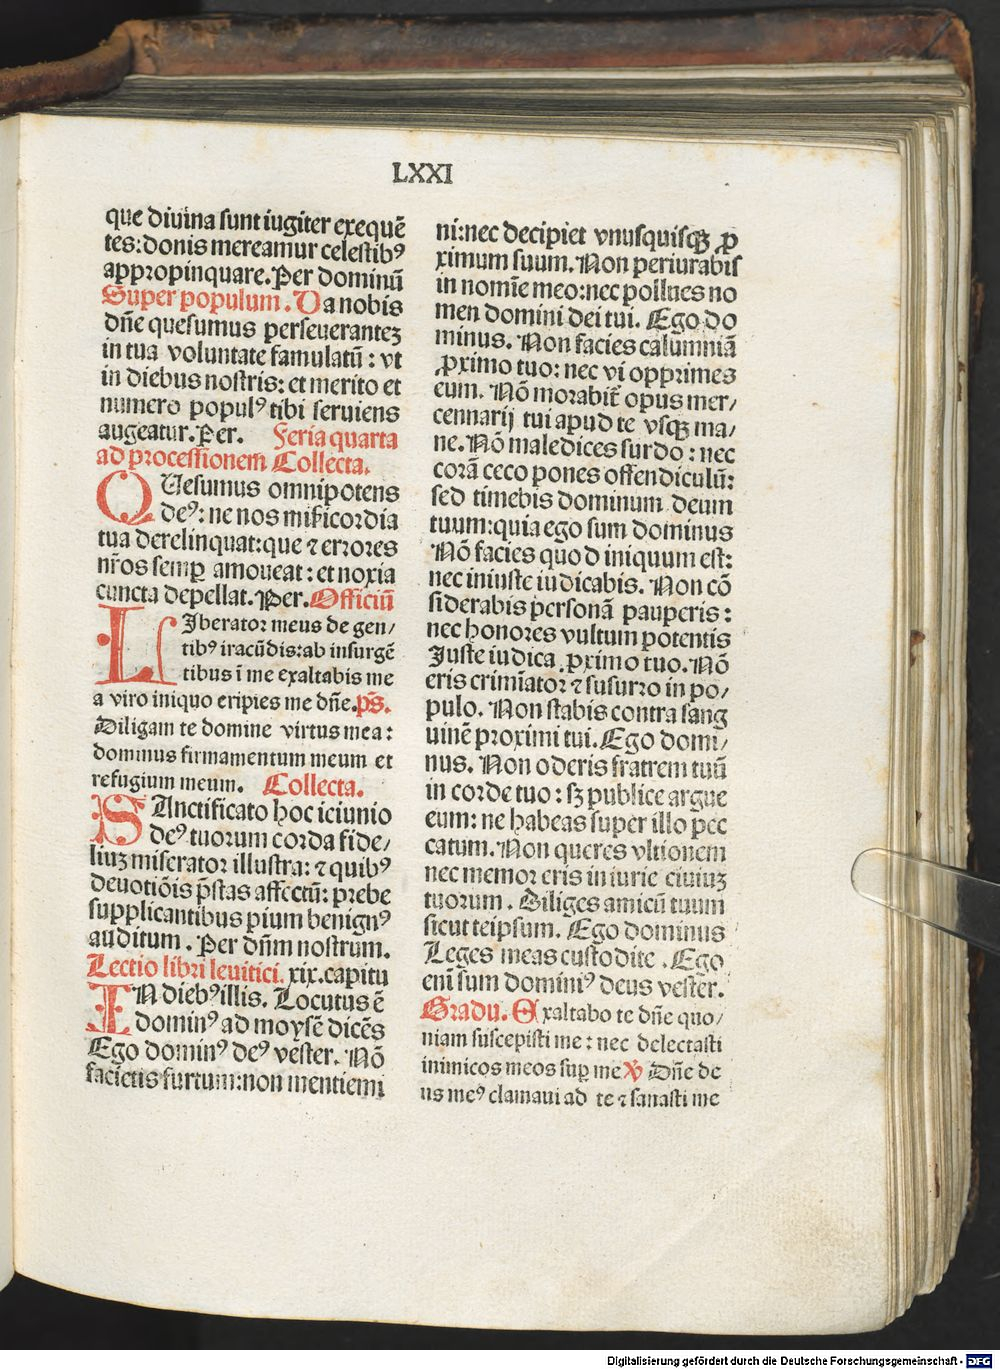 LXXI
que diuina sunt iugiter exequē
tes: donis mereamur celestibꝰ
appropinquare. Per dominū
Super populum. Da nobis
dn̄e quesumus perseueranteꝫ
in tua voluntate famulatū: vt
in diebus nostris: et merito et
numero populꝰ tibi seruiens
augeatur. Per. Feria quarta
ad processionem Collecta.
QUesumus omnipotens
deꝰ: ne nos mīsericordia
tua derelinquat: que ⁊ errores
nr̄os semꝑ amoueat: et noxia
cuncta depellat. Per. Officiū
LIberator meus de gen/
tibꝰ iracūdis: ab insurgē
tibus ī me exaltabis me
a viro iniquo eripies me dn̄e. ps̄.
Diligam te domine virtus mea:
dominus firmamentum meum et
refugium meum. Collecta.
SAnctificato hoc ieiunio
deꝰ tuorum corda fide/
liuꝫ miserator illustra: ⁊ quibꝰ
deuotiōis p̄stas affectū: prebe
supplicantibus pium benignꝰ
auditum. Per dn̄m nostrum.
Lectio libri leuitici. xix. capitu
IN diebꝰ illis. Locutus ē
dominꝰ ad moysē dicēs
Ego dominꝰ deꝰ vester. Nō
facietis furtum: non mentiemi
ni: nec decipiet vnusquisqꝫ ꝓ
ximum suum. Non periurabis
in nomīe meo: nec pollues no
men domini dei tui. Ego do
minus. Non facies calumniā
ꝓximo tuo: nec vi opprimes
eum. Nō morabit̄ opus mer/
cennarij tui apud te vsqꝫ ma/
ne. Nō maledices surdo: nec
corā ceco pones offendiculū:
sed timebis dominum deum
tuum: quia ego sum dominus
Nō facies quod iniquum est:
nec iniuste iudicabis. Non cō
siderabis personā pauperis:
nec honores vultum potentis
Juste iudica ꝓximo tuo. Nō
eris crimīator ⁊ susurro in po/
pulo. Non stabis contra sang
uinē proximi tui. Ego domi/
nus. Non oderis fratrem tuū
in corde tuo: sꝫ publice argue
eum: ne habeas super illo pec
catum. Non queres vltionem
nec memor eris iniurie ciuiuꝫ
tuorum. Diliges amicū tuum
sicut teipsum. Ego dominus
Leges meas custodite. Ego
eni̅ sum dominꝰ deus vester.
Gradu. Exaltabo te dn̄e quo/
niam suscepisti me: nec delectasti
inimicos meos suꝑ me ꟟ Dn̄e de
us meꝰ clamaui ad te ⁊ sanasti me
Digitalisierung gefördert durch die Deutsche Forschungsgemeinschaft - DFG